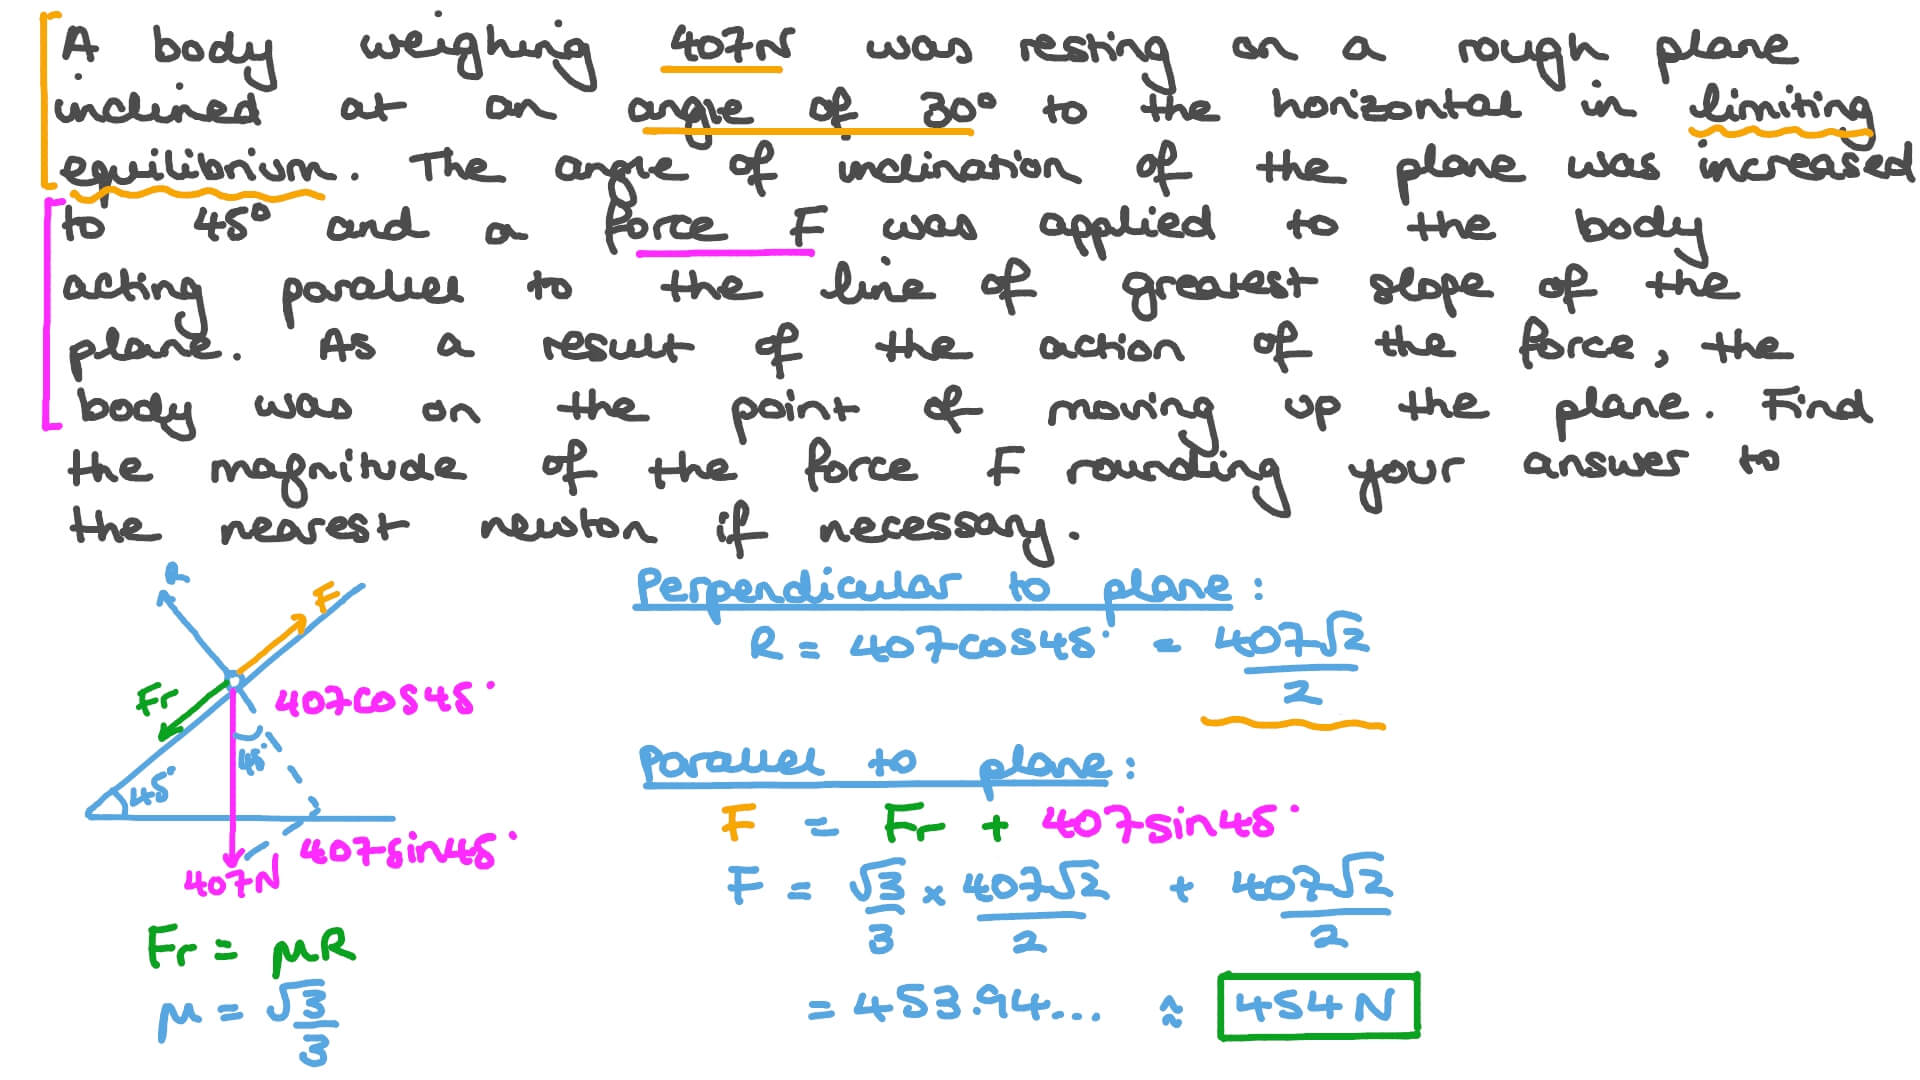 A body weighing 407N was resting on a rough plane
inclined at an angle of 30° to the horizontal in limiting
equilibrium. The angle of inclination of the plane was increased
to 45° and a force F was applied to the body
acting parallel to the line of greatest slope of the
plane. As a result of the action of the force, the
body was on the point of moving up the plane. Find
the magnitude of the force F rounding your answer to
the nearest newton if necessary.
R
F
Fr
407cos45°
45°
45°
407sin45°
407N
Fr = μR
μ = √3/3
Perpendicular to plane:
R = 407cos45° = 407√2/2
Parallel to plane:
F = Fr + 407sin45°
F = √3/3 × 407√2/2 + 407√2/2
= 453.94... ≈ 454N